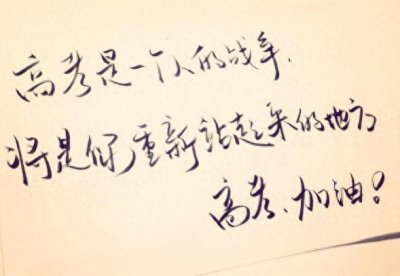 高考是一个人的战争，
将是你重新站起来的地方
高考、加油！